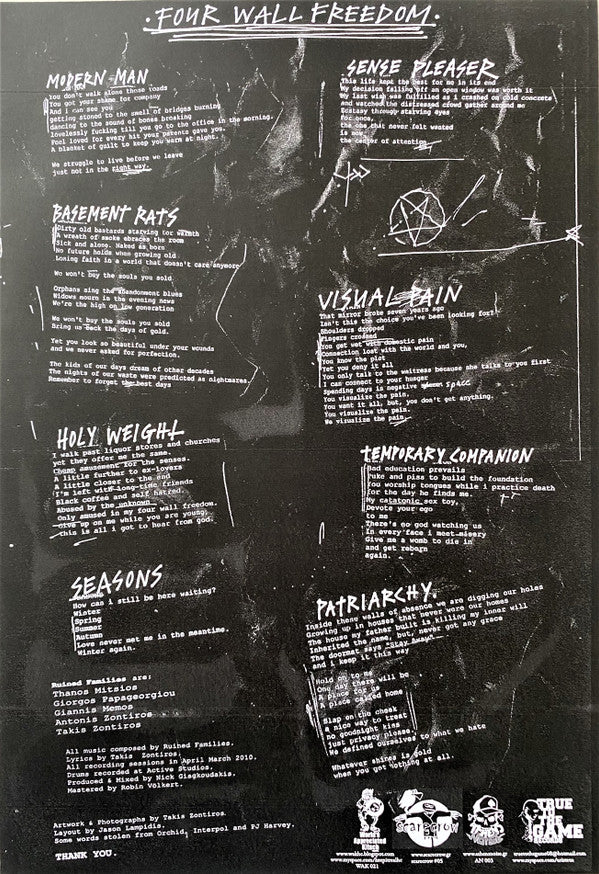 ·FOUR WALL FREEDOM·
MODERN MAN
You don't walk alone those roads
You got your shame for company
And i can see you
getting stoned to the smell of bridges burning
dancing to the sound of bones breaking
lovelessly fucking till you go to the office in the morning.
Fool loved for every hit your parents gave you.
A blacket of guilt to keep you warm at night.
We struggle to live before we leave
just not in the right way.
BASEMENT RATS
Dirty old bastards starving for warmth
A wreath of smoke ebraces the room
Sick and alone. Naked as born
No future holds when growing old
Losing faith in a world that doesn't care anymore
We won't buy the souls you sold
Orphans sing the abandonment blues
Widows mourn in the evening news
We're the high on low generation
We won't buy the souls you sold
Bring us back the days of gold.
Yet you look so beautiful under your wounds
and we never asked for perfection.
The kids of our days dream of other decades
The nights of our waste were predicted as nightmares.
Remember to forget the best days
HOLY WEIGHT
I walk past liquor stores and churches
yet they offer me the same.
Cheap amusement for the senses.
A little further to ex-lovers
A little closer to the end
I'm left with long-time friends
Black coffees and self hatred.
Abused by the unknown
Only amused in my four wall freedom.
Give up on me while you are young,
this is all i got to hear from god.
SEASONS
How can i still be here waiting?
Winter
Spring
Summer
Autumn
Love never met me in the meantime.
Winter again.
Ruined Families are:
Thanos Mitsios
Giorgos Papageorgiou
Giannis Memos
Antonis Zontiros
Takis Zontiros
All music composed by Ruined Families.
Lyrics by Takis Zontiros.
All recording sessions in April March 2010.
Drums recorded at Active Studios.
Produced & Mixed by Nick Giagkoudakis.
Mastered by Robin Völkert.
Artwork & Photographs by Takis Zontiros.
Layout by Jason Lampidis.
Some words stolen from Orchid, Interpol and PJ Harvey.
THANK YOU.
SENSE PLEASER
This life kept the best for me in its end
My decision falling off an open window was worth it
My last wish was fulfilled as i crashed on cold concrete
and watched the distressed crowd gather around me
Ecstasy through starving eyes
For once,
the one that never felt wanted
is now,
the center of attention.
VISUAL PAIN
That mirror broke seven years ago
Isn't this the choice you've been looking for?
Shoulders dropped
Fingers crossed
You get wet with domestic pain
Connection lost with the world and you,
You know the plot
Yet you deny it all
You only talk to the weitress because she talks to you first
I can connect to your hunger
Spending days is negative space
You visualize the pain.
You want it all, but, you don't get anything.
You visualize the pain.
We visualize the pain.
TEMPORARY COMPANION
Bad education prevails
Puke and piss to build the foundation
You worship tongues while i practice death
for the day he finds me.
My catatonic sex toy,
Devote your ego
to me
There's no god watching us
In every face i meet misery
Give me a womb to die in
and get reborn
again.
PATRIARCHY.
Inside these walls of absence we are digging our holes
Growing up in houses that never wore our homes
The house my father built is killing my inner will
Inherited the name, but, never got any grace
The doormat says "Stay Away"
and i keep it this way
Hold on to me
One day there will be
A place for us
A place called home
Slap on the cheek
a nice way to treat
no goodnight kiss
just privacy please.
We defined ourselves to what we hate
Whatever shines is sold
when you got nothing at all.
Appreciated
WAK 021
scarecrow
www.scarecrow.gr
scarecrow #05
AN 003
TRUE
TO THE
GAME
RECORDS